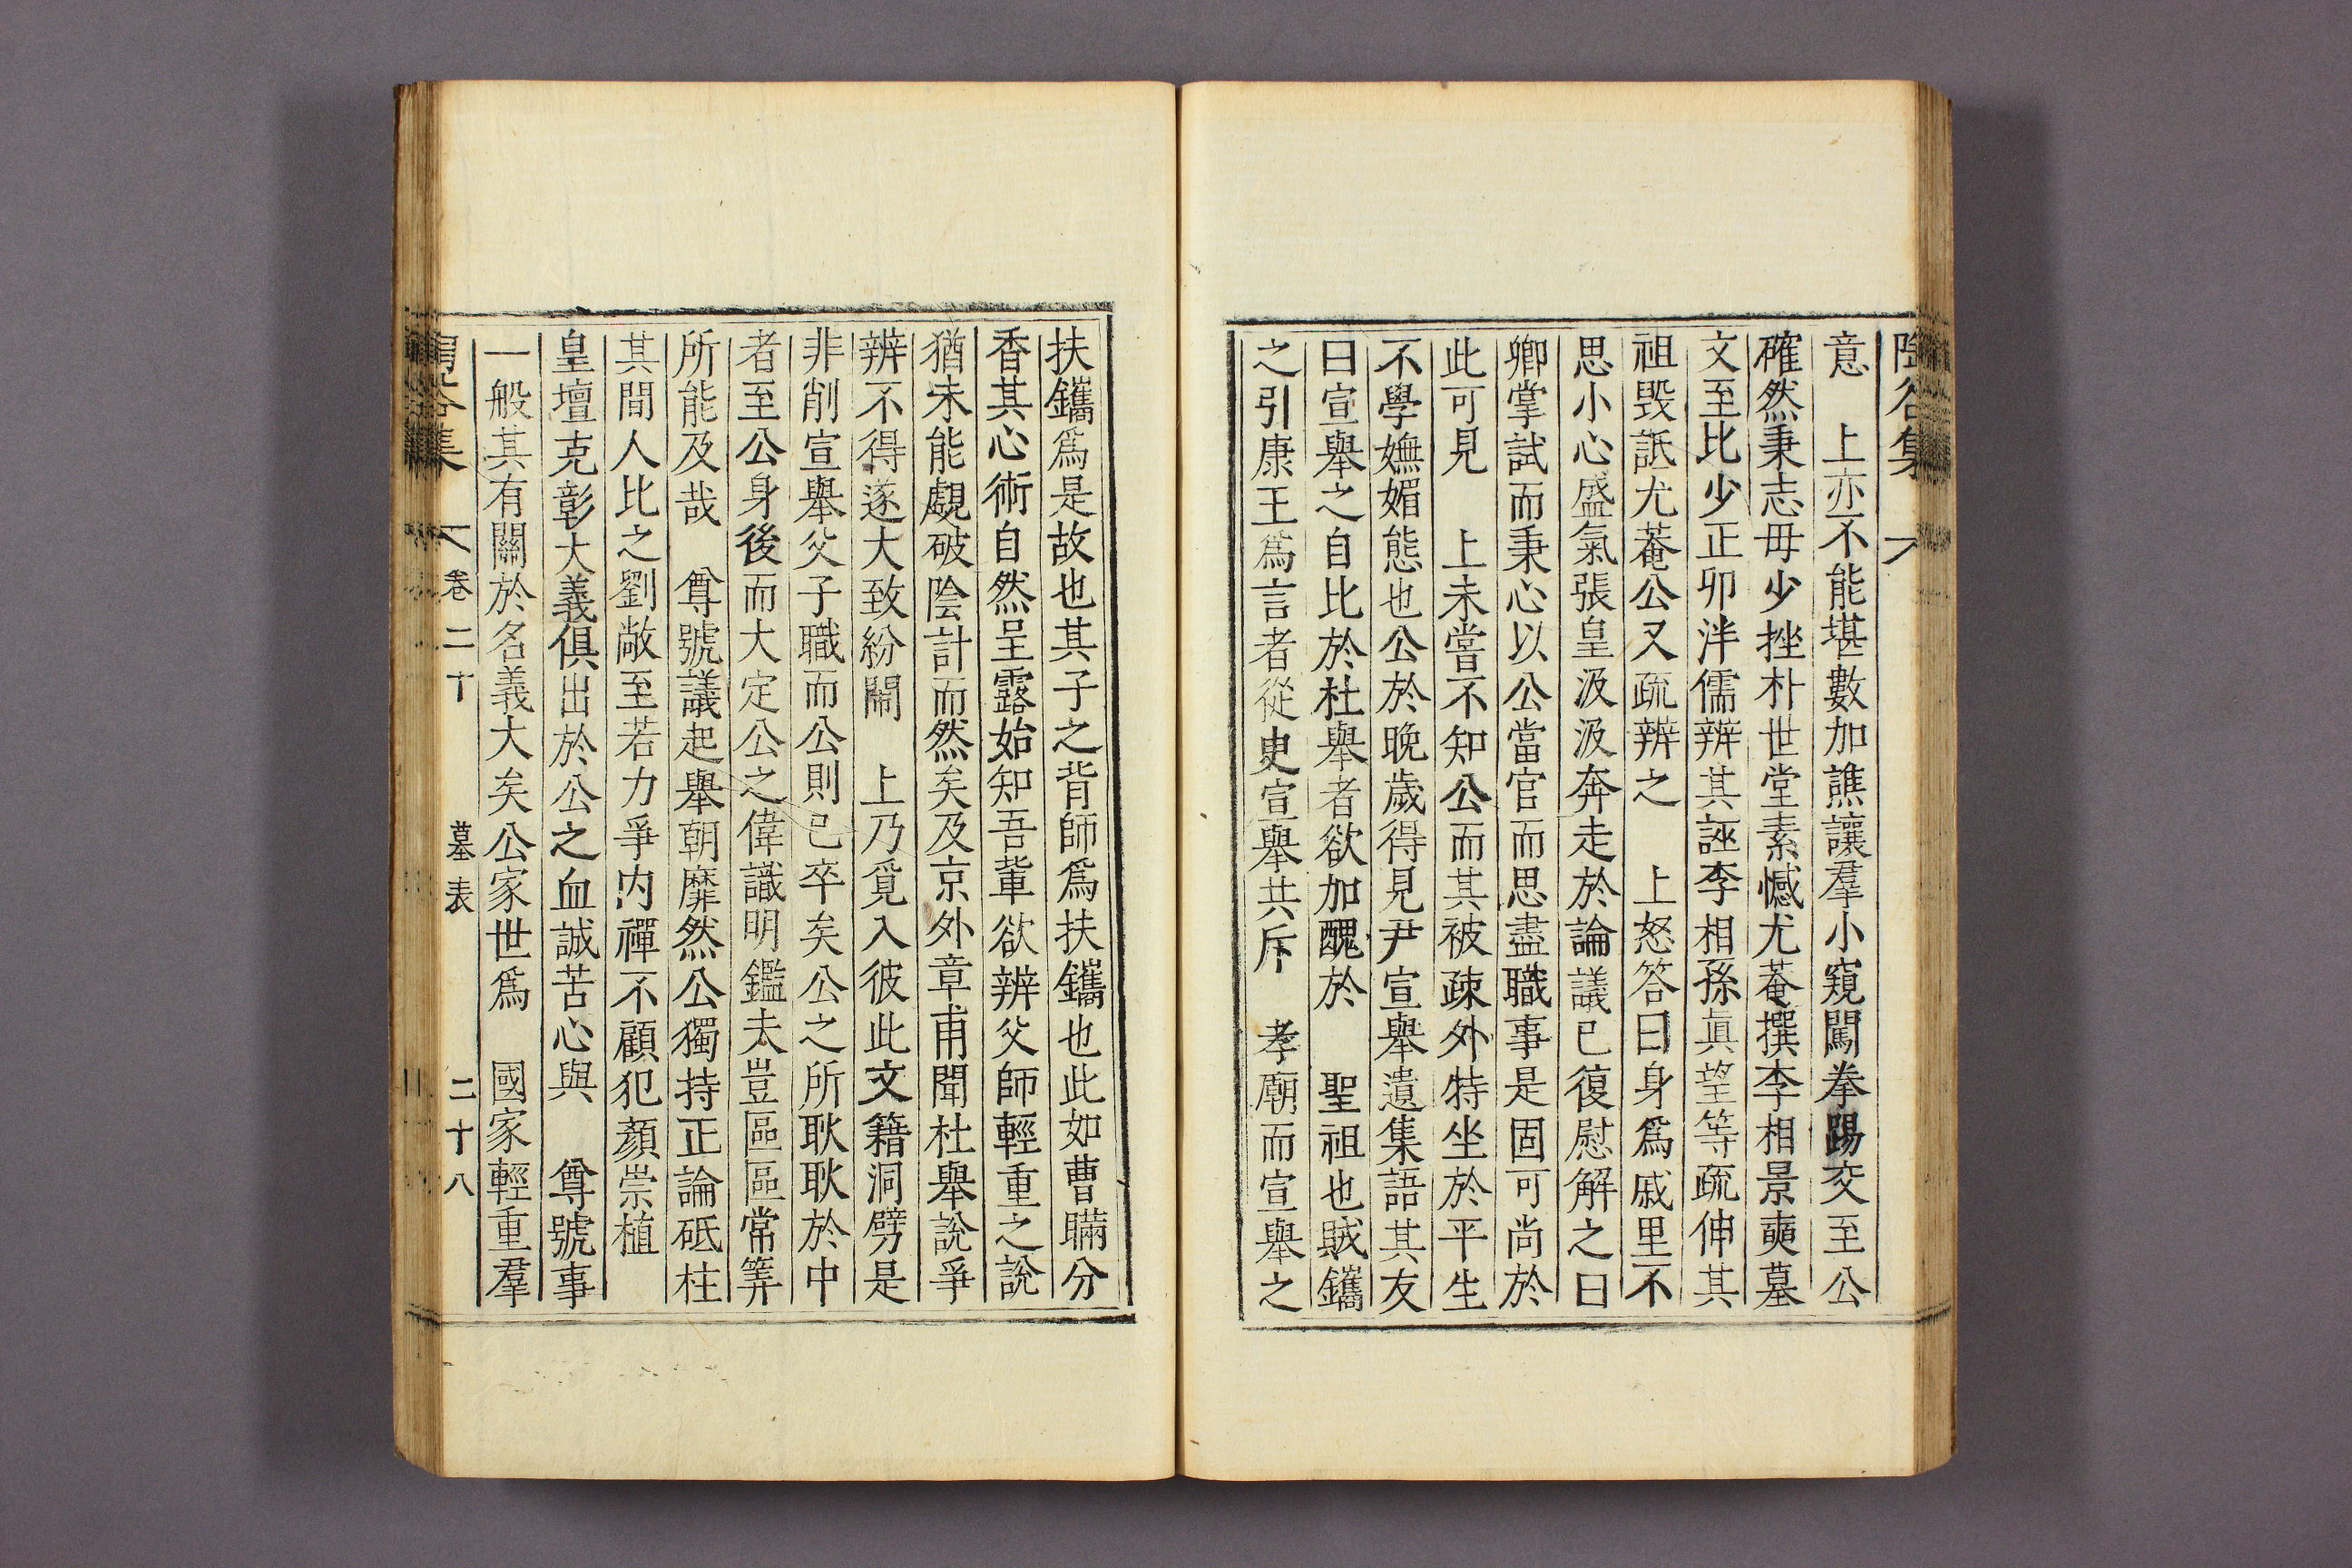 陶谷集
意　上亦不能堪數加譙讓羣小窺闖拳踢交至公
確然秉志毋少挫朴世堂素憾尤菴撰李相景奭墓
文至比少正卯泮儒辨其誣李相孫眞望等疏伸其
祖毁詆尤菴公又疏辨之　上怒答曰身爲戚里不
思小心盛氣張皇汲汲奔走於論議已復慰解之曰
卿掌試而秉心以公當官而思盡職事是固可尚於
此可見　上未嘗不知公而其被疎外特坐於平生
不學嫵媚態也公於晩歲得見尹宣擧遺集語其友
曰宣擧之自比於杜擧者欲加醜於　聖祖也賊鑴
之引康王爲言者從臾宣擧共斥　孝廟而宣擧之
扶鑴爲是故也其子之背師爲扶鑴也此如曹瞞分
香其心術自然呈露始知吾輩欲辨父師輕重之說
猶未能覷破陰計而然矣及京外章甫聞杜擧說爭
辨不得遂大致紛鬧　上乃覓入彼此文籍洞劈是
非削宣擧父子職而公則已卒矣公之所耿耿於中
者至公身後而大定公之偉識明鑑夫豈區區常筭
所能及哉　尊號議起擧朝靡然公獨持正論砥柱
其間人比之劉敞至若力爭内禪不顧犯顔崇植
皇壇克彰大義俱出於公之血誠苦心與　尊號事
一般其有關於名義大矣公家世爲　國家輕重羣
陶谷集　卷二十　墓表　二十八